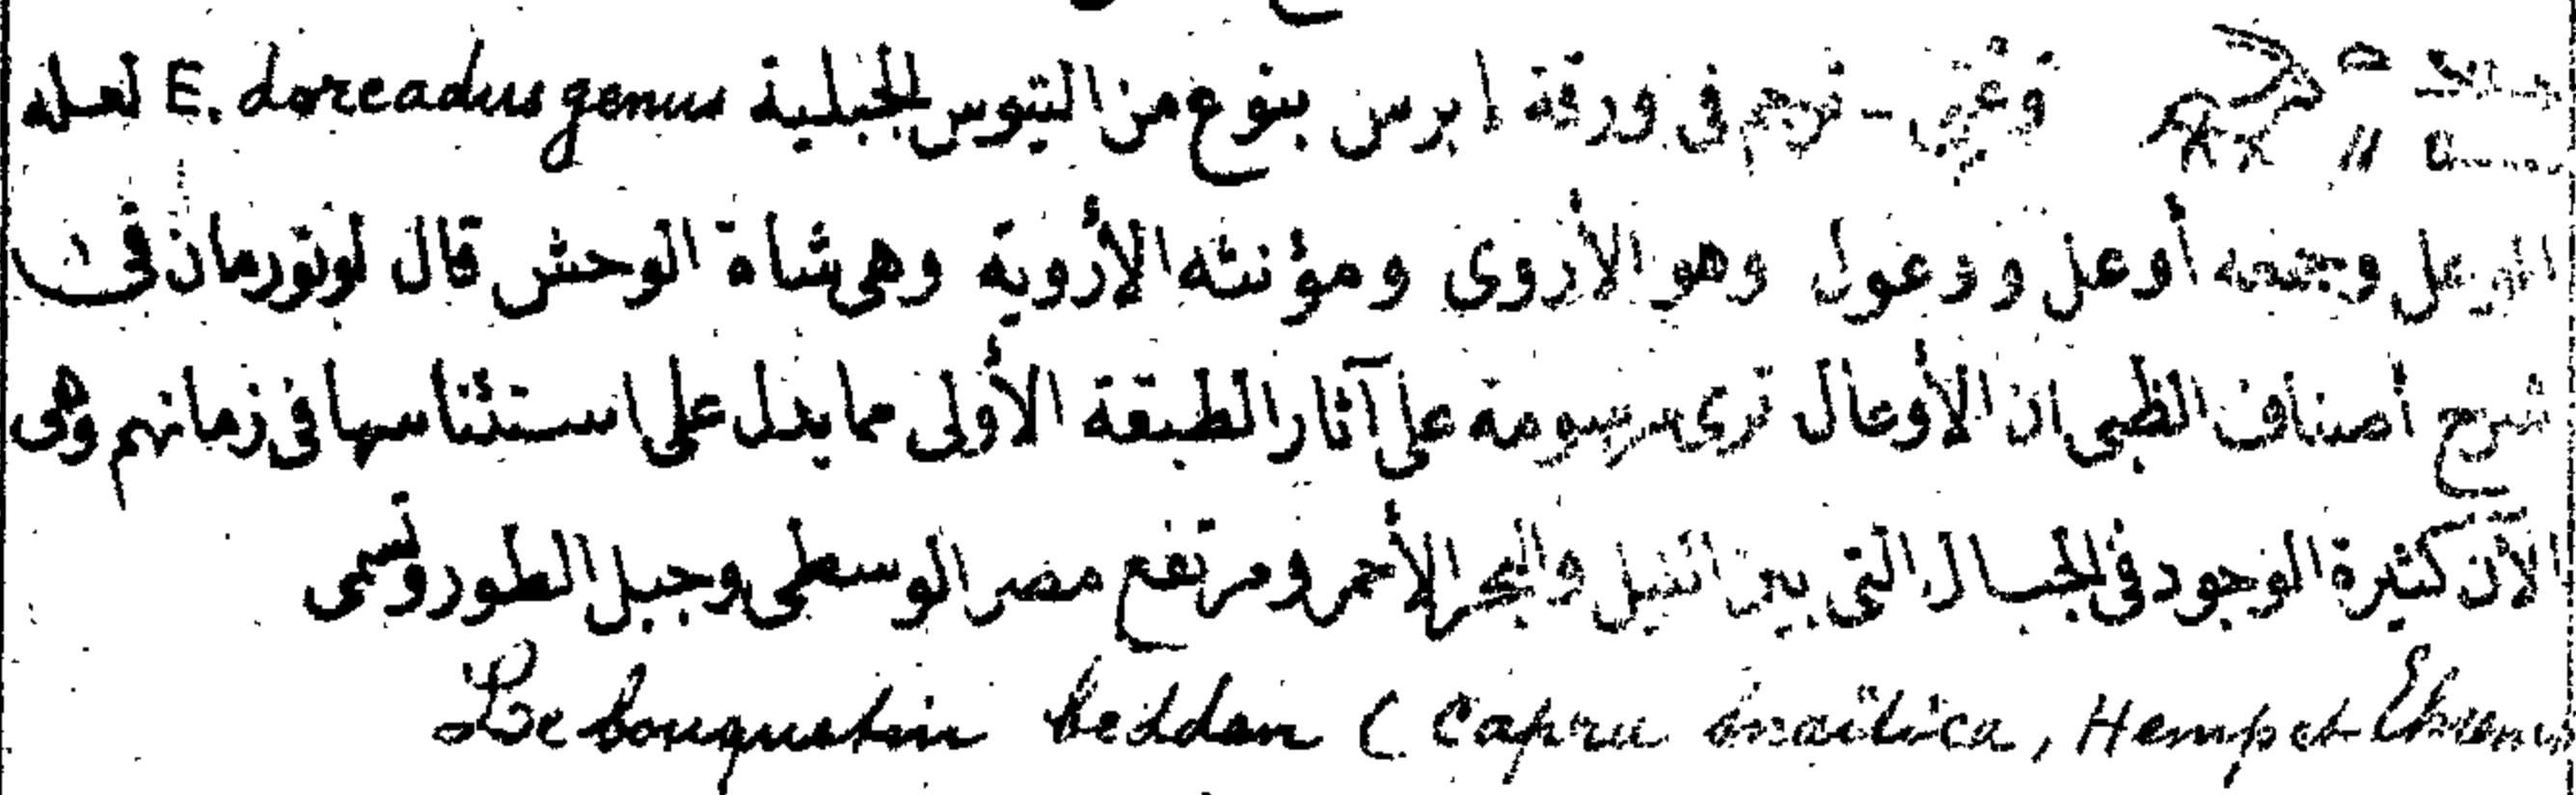 ترجم فى ورقة ابرس بنوع من التيوس الجبلية E. doreadus genus لعله
الوعل وجمعه أوعل ووعول وهو الأروى ومؤنثه الأروية وهى شاة الوحش قال لونورمان فى
شرح أصناف الظبى ان الأوعال ترى مرسومة على آثار الطبقة الأولى مما يدل على استئناسها فى زمانهم وهى
الآن كثيرة الوجود فى الجبال التى بين النيل والبحر الأحمر ومرتفع مصر الوسطى وجبل الطور وتسمى
Le bouquetin beddan (Capra sinaïtica, Hemp et